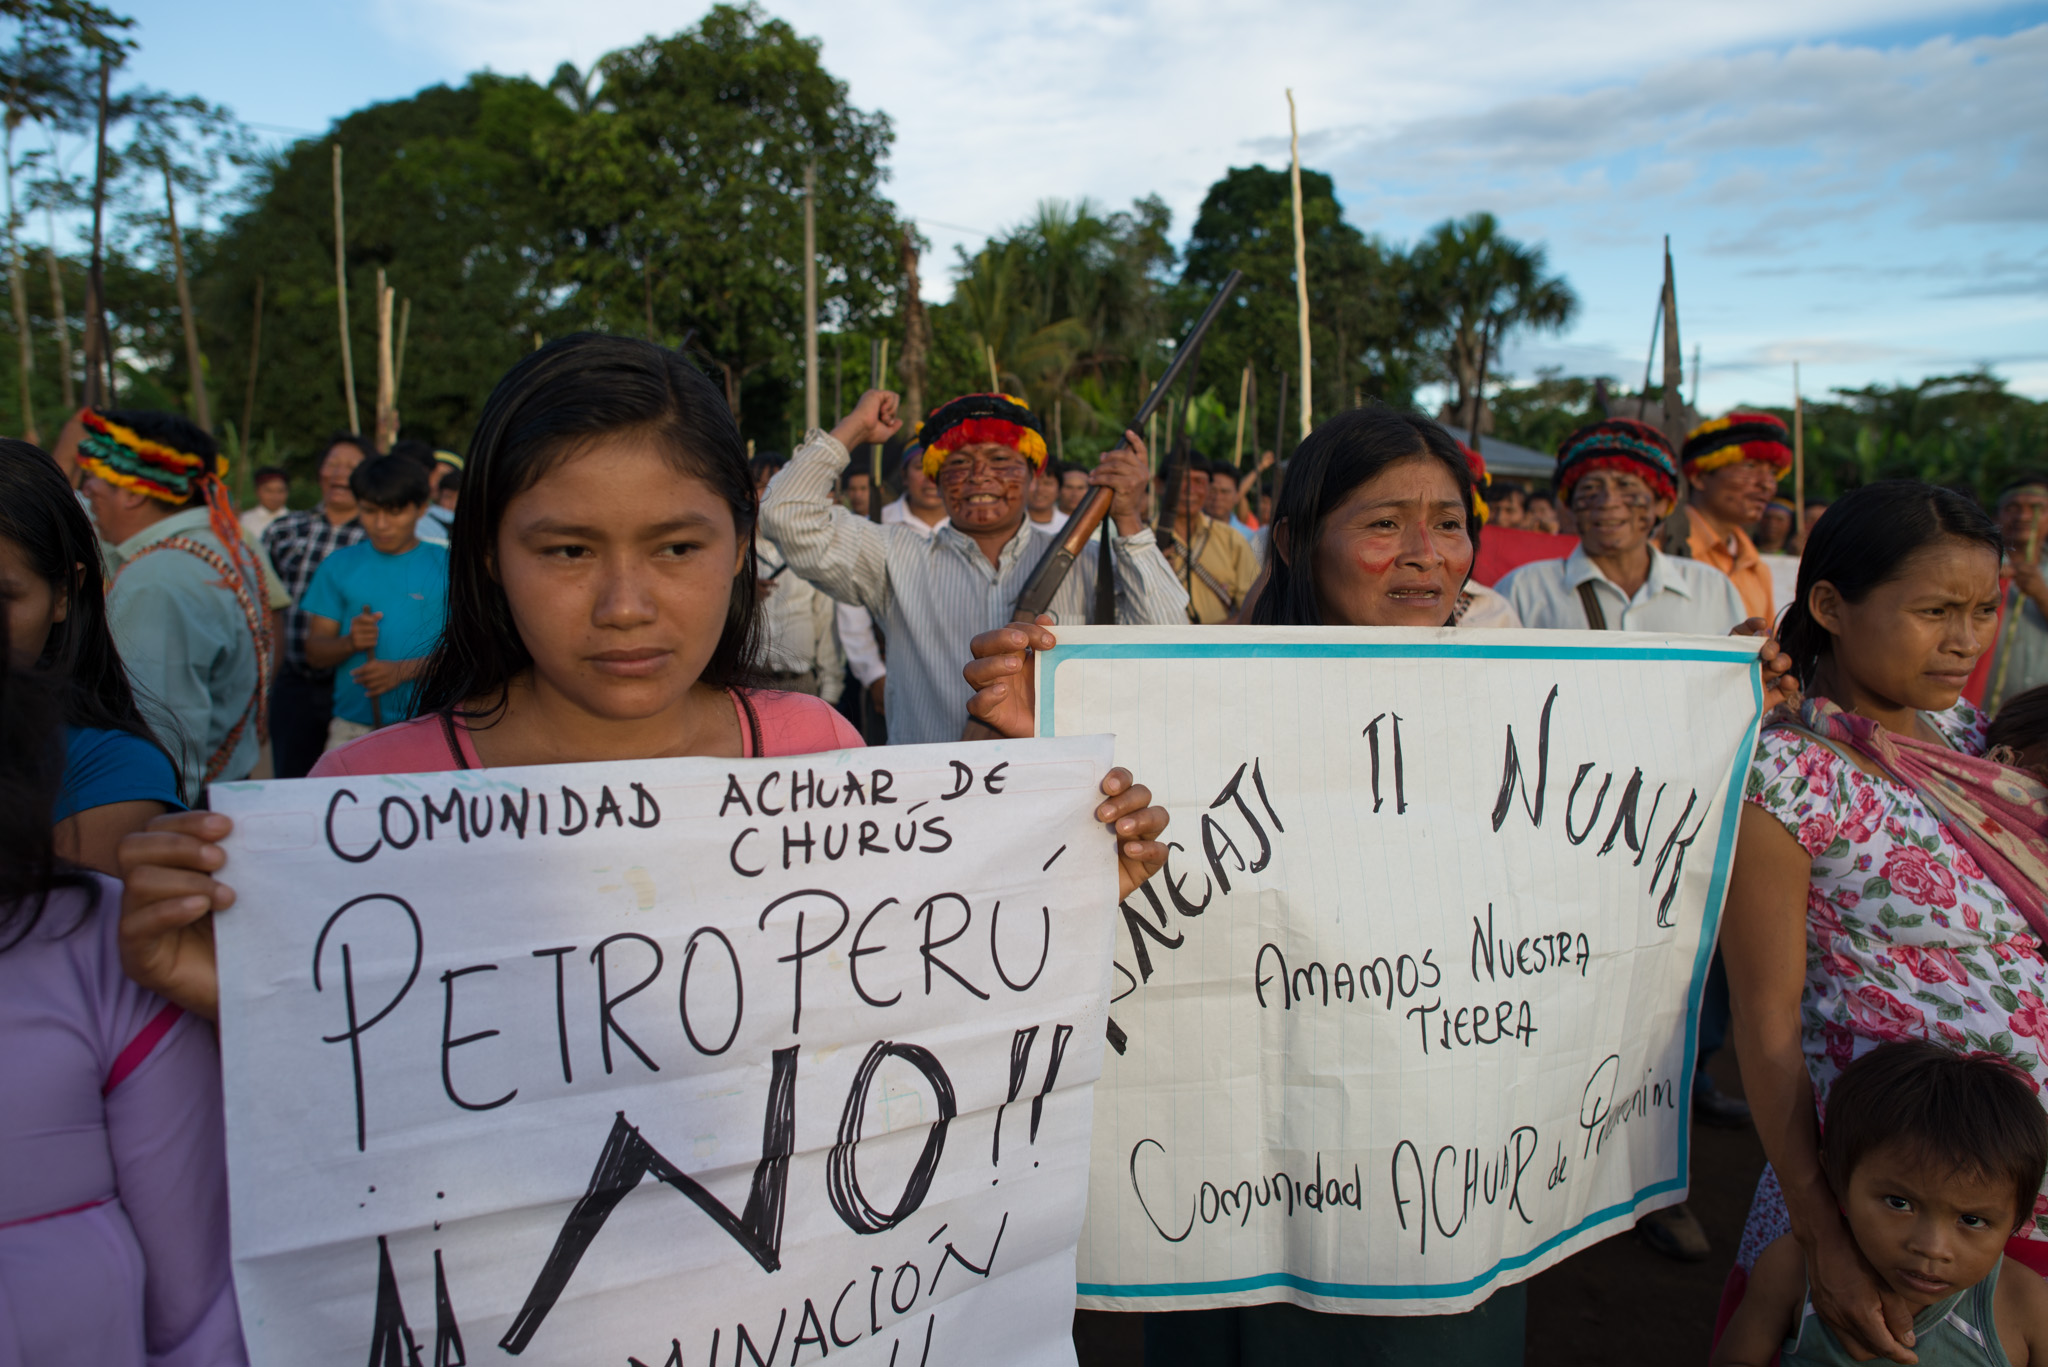 COMUNIDAD ACHUAR DE
CHURÚS
PETROPERÚ
¡¡NO!!
II NUNK
AMAMOS NUESTRA
TIERRA
Comunidad ACHUAR de